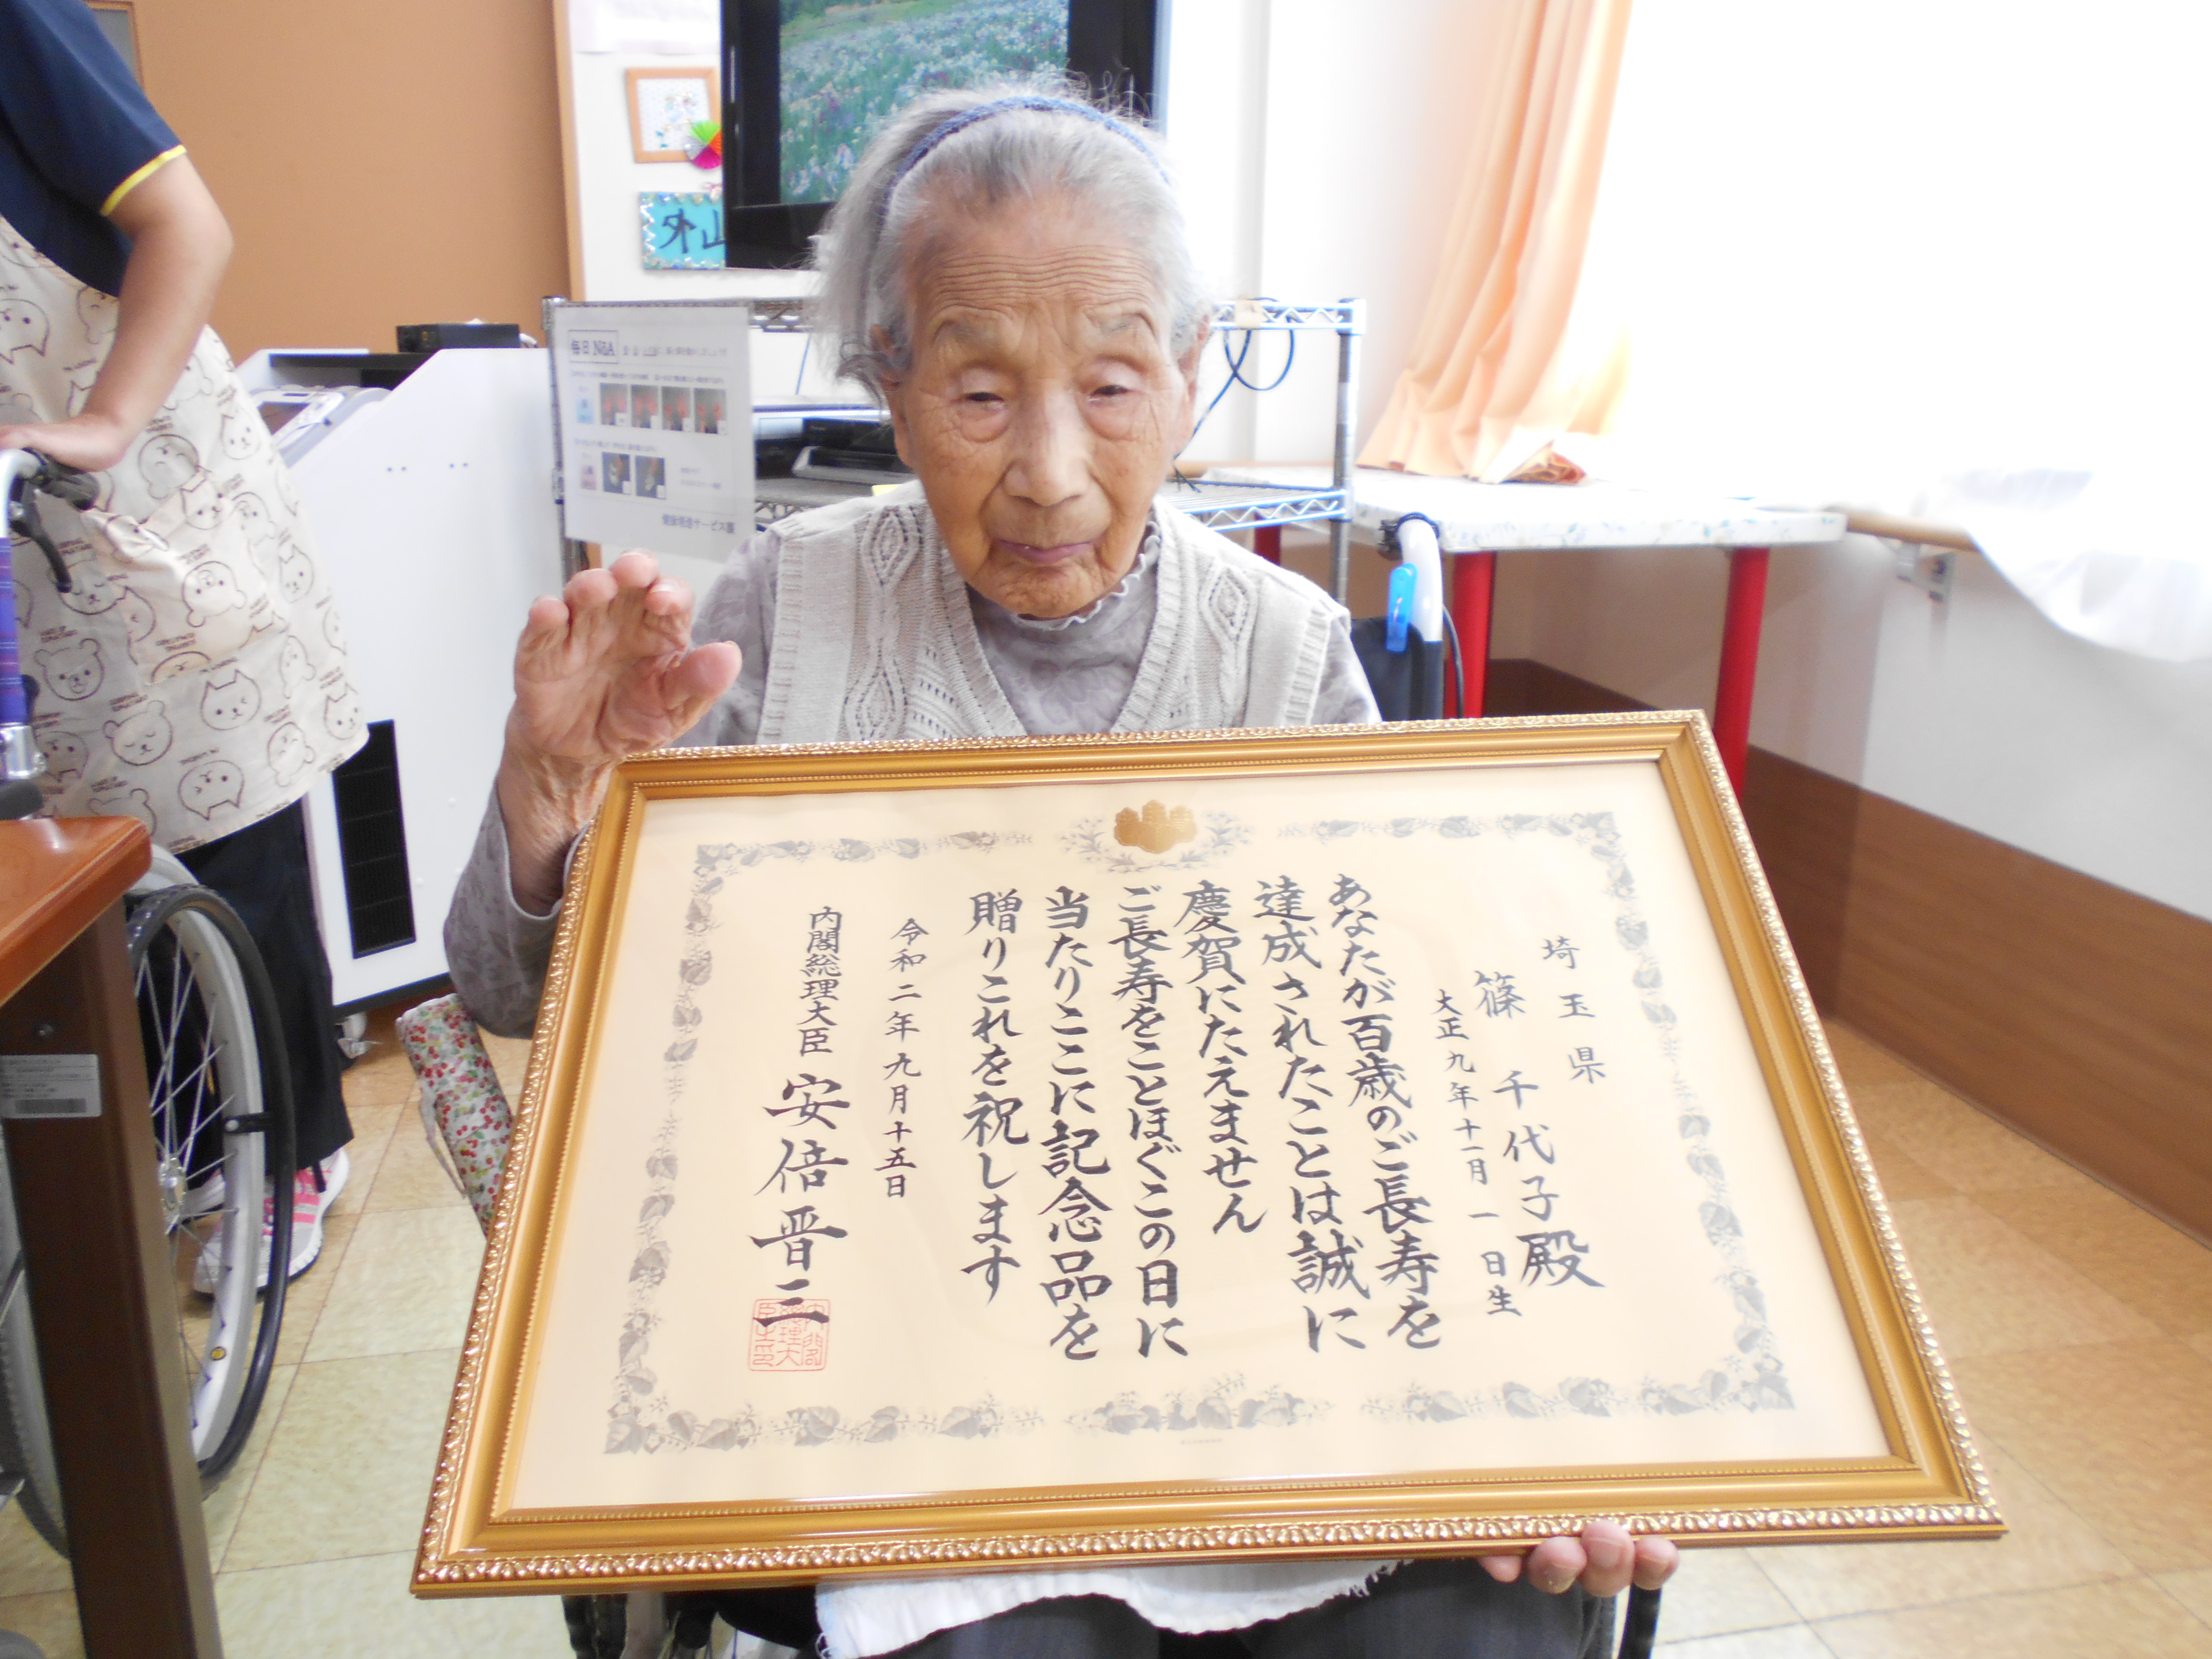 埼玉県
篠 千代子殿
大正九年十一月一日生
あなたが百歳のご長寿を
達成されたことは誠に
慶賀にたえません
ご長寿をことほぐこの日に
当たりここに記念品を
贈りこれを祝します
令和二年九月十五日
内閣総理大臣 安倍晋三
内閣総理大臣之印
外山
毎日